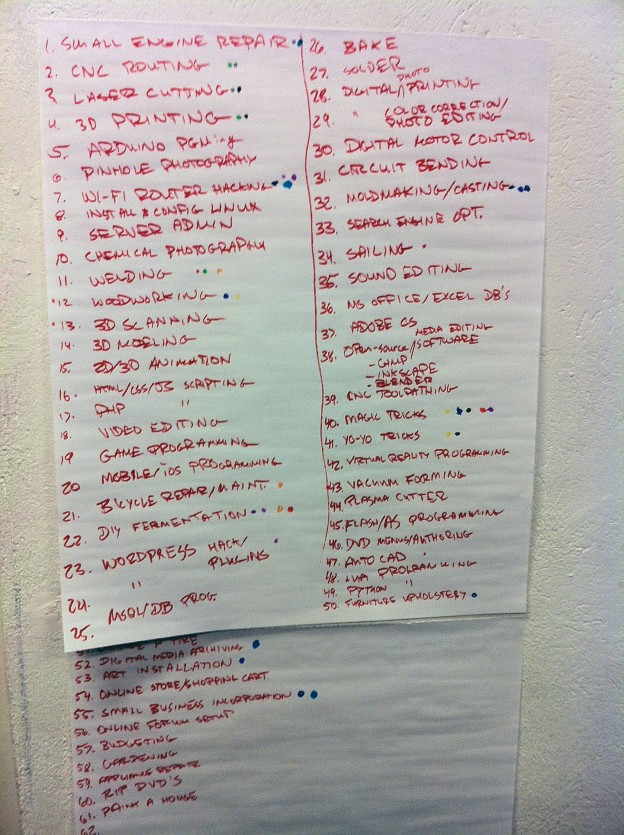 1. SMALL ENGINE REPAIR
2. CNC ROUTING
3. LASER CUTTING
4. 3D PRINTING
5. ARDUINO PGMing
6. PINHOLE PHOTOGRAPHY
7. WI-FI ROUTER HACKING
8. INSTALL & CONFIG LINUX
9. SERVER ADMIN
10. CHEMICAL PHOTOGRAPHY
11. WELDING
12. WOODWORKING
13. 3D SCANNING
14. 3D MODELING
15. 2D/3D ANIMATION
16. HTML/CSS/JS SCRIPTING
17. PHP "
18. VIDEO EDITING
19 GAME PROGRAMMING
20 MOBILE/iOS PROGRAMMING
21. BICYCLE REPAIR/MAINT.
22. DIY FERMENTATION
23. WORDPRESS HACK/
PLUGINS
24. "
25. MSQL/DB PROG
26. BAKE
27. SOLDER
28. DIGITAL/PHOTO PRINTING
29. " COLOR CORRECTION/
PHOTO EDITING
30. DIGITAL MOTOR CONTROL
31. CIRCUIT BENDING
32. MOLDMAKING/CASTING
33. SEARCH ENGINE OPT.
34. SAILING
35. SOUND EDITING
36. MS OFFICE/EXCEL DB'S
37. ADOBE CS
38. OPEN-SOURCE/MEDIA EDITING SOFTWARE
- GIMP
- INKSCAPE
- BLENDER
39. CNC TOOLPATHING
40. MAGIC TRICKS
41. YO-YO TRICKS
42. VIRTUAL REALITY PROGRAMMING
43 VACUUM FORMING
44. PLASMA CUTTER
45. FLASH/AS PROGRAMMING
46. DVD MENUS/AUTHORING
47. AUTO CAD
48. LUA PROGRAMMING
49. PYTHON "
50. FURNITURE UPHOLSTERY
51. A TIRE
52. DIGITAL MEDIA ARCHIVING
53. ART INSTALLATION
54. ONLINE STORE/SHOPPING CART
55. SMALL BUSINESS INCORPORATION
56. ONLINE FORUM SETUP
57. BUDGETING
58. GARDENING
59. APPLIANCE REPAIR
60. RIP DVD'S
61. PAINT A HOUSE
62.